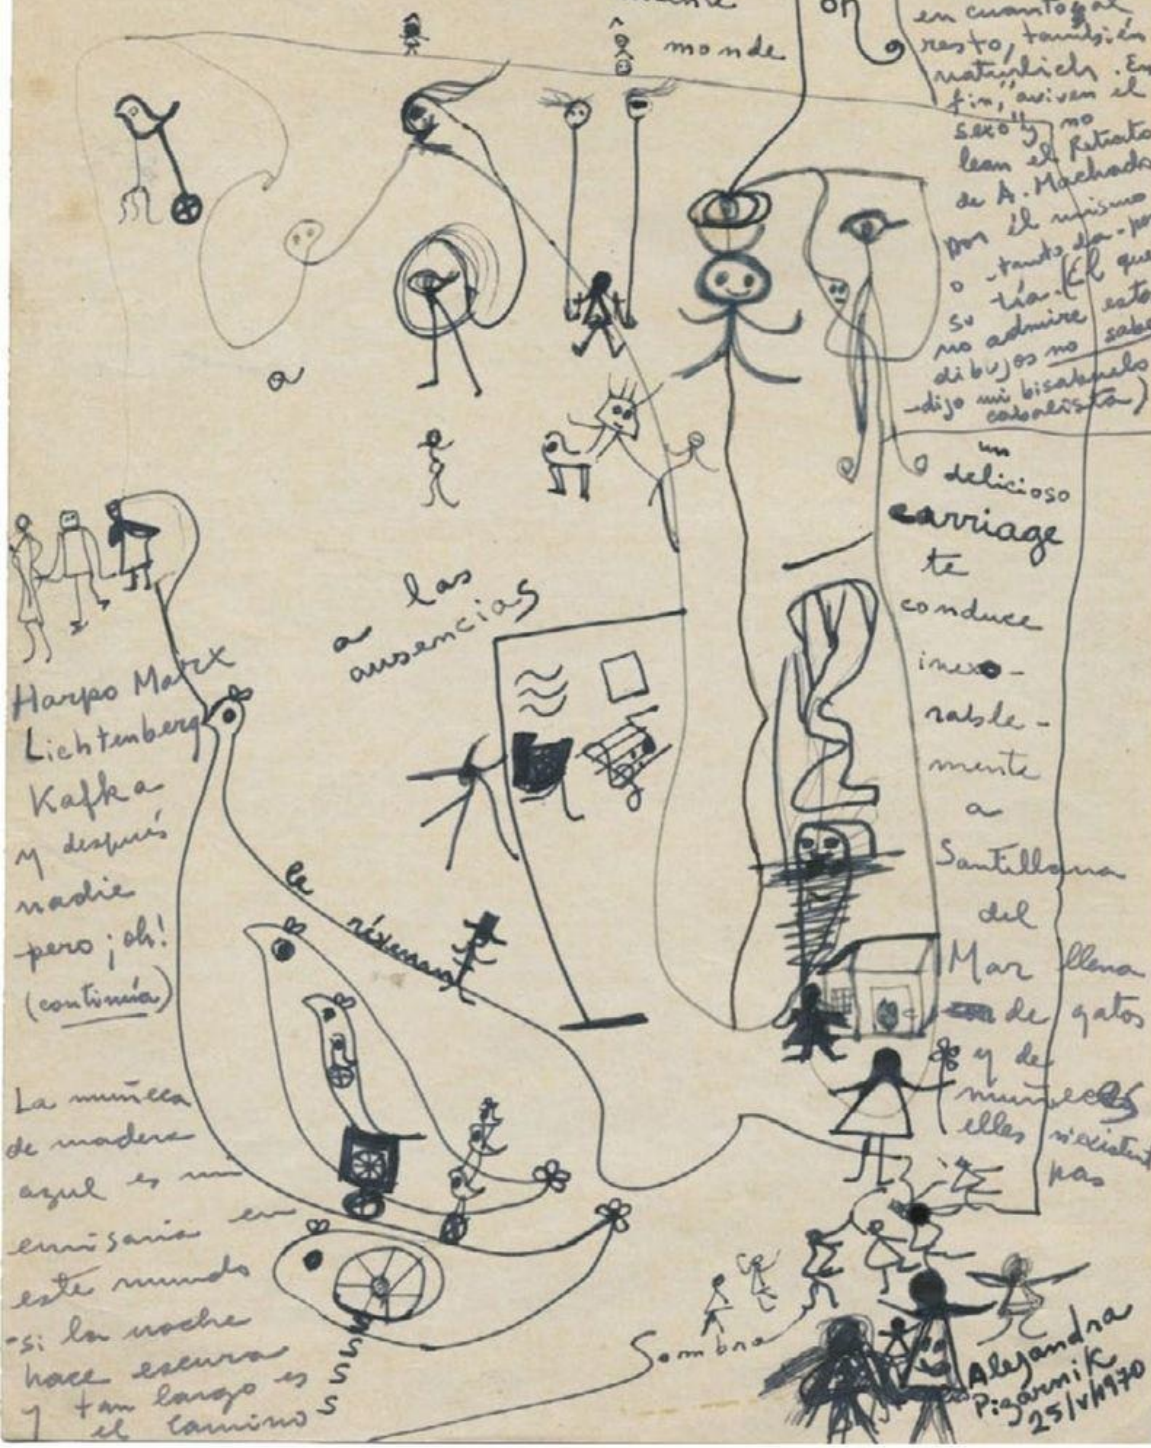 monde
en cuanto al
resto, también
naturlich. En
fin, "aviven el
sexo" y no
lean el Retrato
de A. Machado
por él mismo
o tanto da - por
su tía. (El que
no admire estos
dibujos no sabe
-dijo mi bisabuelo
cabalista)
a
a las
ausencias
un
delicioso
carriage
te
conduce
inexo-
rable-
mente
a
Santillana
del
Mar llena
de gatos
y de
muñecas
elles n'existent
pas
Harpo Marx
Lichtenberg
Kafka
y después
nadie
pero ¡oh!
(continúa)
le
La muñeca
de madera
azul es mi
emisaria en
este mundo
-si la noche
hace escura
y tan largo es
el camino
s
s
s
s
Sombra
Alejandra
Pizarnik
25/V/1970